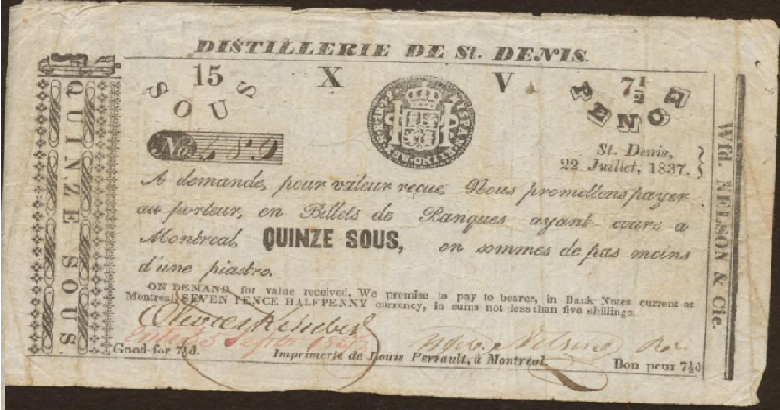 DISTILLERIE DE St. DENIS.
15 X V 7½
SOUS PENCE
No. 489
St. Denis,
22 Juillet, 1837.
QUINZE SOUS
Wfd. NELSON & Cie.
A demande, pour valeur reçue, Nous promettons payer
au porteur, en Billets de Banques ayant cours a
Montreal, QUINZE SOUS, en sommes de pas moins
d'une piastre.
ON DEMAND, for value received, We promise to pay to bearer, in Bank Notes current at
Montreal SEVEN PENCE HALFPENNY currency, in sums not less than five shillings.
Nelson
Good for 7½d. Imprimerie de Louis Perrault, à Montreal. Bon pour 7½d